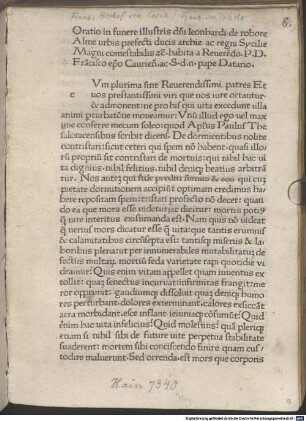 Oratio in funere illustris dñi leonhardi de robore
Alme urbis prefecti ducis archie ac regni Sycilie
Magni comestabilis zč. habita a Reuerẽdo. P. D.
Frãcisco ep̃o Caurieñ. ac S. d. n. pape Datario.
Vm plurima sint Reuerendissimi patres Et
c uos prestantissimi uiri que nos iure ortantur
& admonent: ne pro his qui uita excedunt ulla
animi pturbatõne moueamur: Vnũ illud ego uel max
ime cõferre mecum soleo: quod Apl'us Paulus The
salonicensibus scribit dicens. De dormientibus nolite
contristari: sicut ceteri qui spem nõ habent. quasi illo
rũ propriũ sit contristari de mortuis: qui nihil hac ui
ta dignius. nihil felitius. nihil deniq beatius arbitrẽ
tur. Nos autẽ qui
quietate dormitionem accipiũt optimam credimus ha
bere repositam spem: tristari profecto nõ decet: quan
do ea que mors esse uidetur
q̃ uite interitus existimanda est. Nam quis nõ uideat
q̃ uerius mors dicatur esse q̃ uita: que tantis erumnis
& calamitatibus circũsepta est: tantisq miseriis & la
boribus plena: ut per innumerabiles mutabilitatũ de
fectus multas mortis feda uarietate rapi quotidie vi
deamur? Quis enim vitam appellet quam iuuentus ex
tollit: quaq senectus incuruat: infirmitas frangit: me
ror opprimit: gaudiumq dissoluit quaq deniq humo
res perturbant. dolores exterminant. calores exsiccãt
aera morbidant. esce inflant. ieiuniaq cõsumũt? Quid
enim hac uita infelicius? Quid molestius? quã pleriq
etiam si nihil sibi de future uite perpetua stabilitate
suaderent: mortem sibi conciscendo finire quam cus/
todire maluerent. Sed orrenda. est mors que corporis
Hain 7340